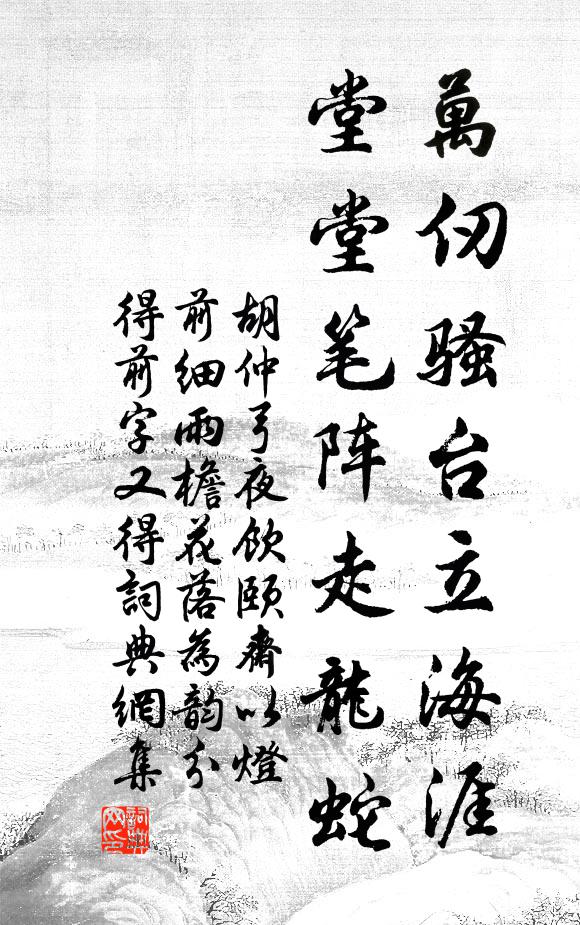 萬仞骚台立海涯
堂堂笔阵走龍蛇
胡仲弓夜飲頤齋以燈
前細雨檐花落為韵分
得前字又得詞典網集